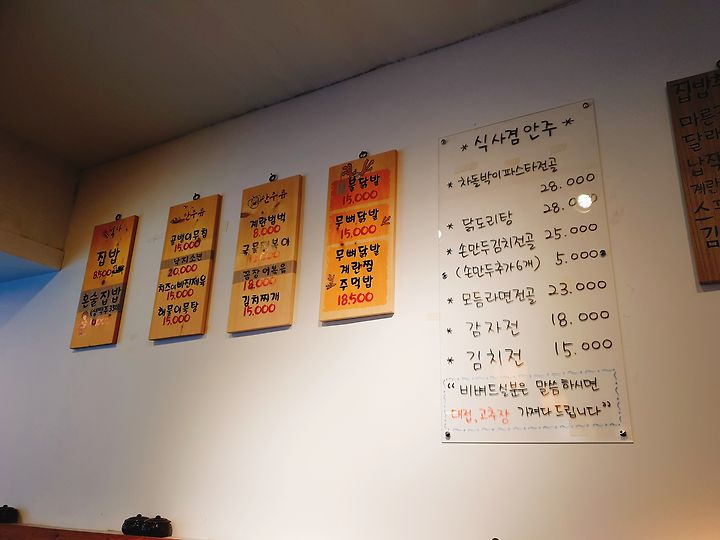 집밥
8.500
혼술집밥
골뱅이무침
15.000
낙지소면
20.000
치즈돼지두루치기
15.000
해물어묵탕
15.000
안주류
계란범벅
8.000
곰장어볶음
18.000
김치찌개
15.000
불닭발
15.000
무뼈닭발
15.000
무뼈닭발
계란찜
주먹밥
18.500
* 식사겸안주 *
* 차돌박이파스타전골
28.000
* 닭도리탕 28.000
* 손만두김치전골 25.000
(손만두추가6개) 5.000
* 모듬라면전골 23.000
* 감자전 18.000
* 김치전 15.000
“비벼드실분은 말씀하시면
대접,고추장 가져다드립니다”
집밥
마른
달래
납작
계란
스프
김